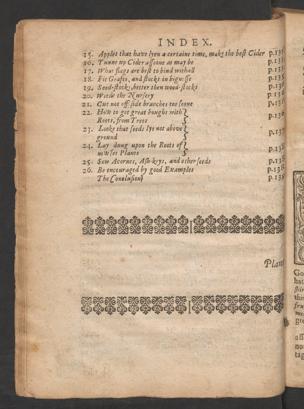 INDEX.
15. Apples that have lyen a certaine time, make the best Cider p.13
16. Tunne up Cider assoone as may be p.13
17. What slags are best to bind withall p.13
18. Fit Grafts, and stocks in bignesse p.13
19. Seed-stocks, better then wood-stocks p.13
20. Weede the Nursery p.13
21. Cut not off side branches too soone p.13
22. How to get great boughs with
Roots, from Trees p.136
23. Looke that seeds lye not above
ground p.137
24. Lay doung upon the Roots of
new set Plants p.138
25. Sow Acornes, Ash-keys, and other seeds p.13
26. Be encouraged by good Examples p.138
The Conclusion p.13
Plant